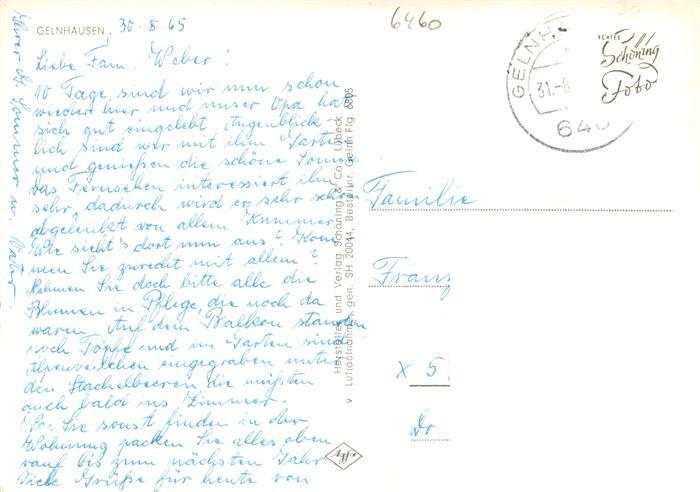 GELNHAUSEN, 30.8.65
6460
Liebe Fam. Weber!
10 Tage sind wir nun schon
wieder hier und unser Opa hat
sich gut eingelebt. Augenblick-
lich sind wir mit ihm im Garten
und genießen die schöne Sonne
das Fernsehen interessiert ihn
sehr, dadurch wird er sehr schön
abgelenkt von allem Kummer.
Wie sieht's dort nun aus? Kom-
men Sie zurecht mit allem?
Nehmen Sie doch bitte alle die
Blumen in Pflege, die noch da
waren. Auf dem Balkon standen
noch Töpfe und im Garten sind
Alpenveilchen eingegraben unter
den Stachelbeeren, die müßten
auch bald ins Zimmer.
Sie sonst finden in der
Wohnung packen Sie alles oben
rauf bis zum nächsten Jahr
Viele Grüße für heute von
Ihrer Sommer u. Vater
Hersteller und Verlag Schöning & Co., Lübeck
Luftaufnahme, gen. SH 20044, Bestellnr. Gelnh Flg. 6895
V
Agfa
GELNH
31.-8
646
ECHTES
Schöning
Foto
Familie
Franz
X 5
Dr